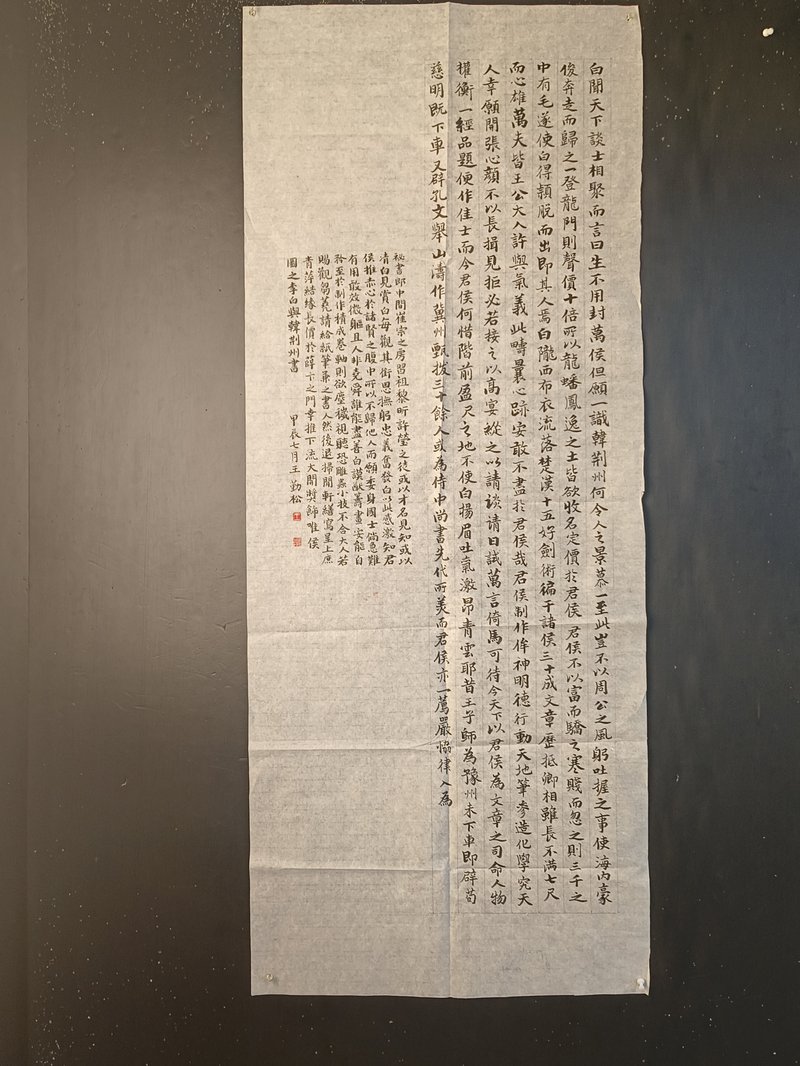 白聞天下談士相聚而言曰生不用封萬侯但願一識韓荆州何令人之景慕一至此豈不以周公之風躬吐握之事使海內豪
俊奔走而歸之一登龍門則聲價十倍所以龍蟠鳳逸之士皆欲收名定價於君侯君侯不以富而驕之寒賤而忽之則三千之
中有毛遂使白得穎脫而出即其人焉白隴西布衣流落楚漢十五好劍術徧干諸侯三十成文章歷抵卿相雖長不滿七尺
而心雄萬夫皆王公大人許與氣義此疇曩心跡安敢不盡於君侯哉君侯制作侔神明德行動天地筆參造化學究天
人幸願開張心顏不以長揖見拒必若接之以高宴縱之以請談請日試萬言倚馬可待今天下以君侯為文章之司命人物
權衡一經品題便作佳士而今君侯何惜階前盈尺之地不使白揚眉吐氣激昂青雲耶昔王子師為豫州未下車即辟荀
慈明既下車又辟孔文舉山濤作冀州甄拔三十餘人或為侍中尚書先代所美而君侯亦一薦嚴協律入為
秘書郎中間崔宗之房習祖黎昕許瑩之徒或以才名見知或以
清白見賞白每觀其銜思撫躬忠義奮發白以此感激知君
侯推赤心於諸賢之腹中所以不歸他人而願委身國士倘急難
有用敢效微軀且人非堯舜誰能盡善白謨猷籌畫安能自
矜至於制作積成卷軸則欲塵穢視聽恐雕蟲小技不合大人若
賜觀芻蕘請給紙筆兼之書人然後退掃閒軒繕寫呈上庶
青萍結緣長價於薛卞之門幸推下流大開獎飾唯侯
圖之李白與韓荆州書 甲辰七月王勤松